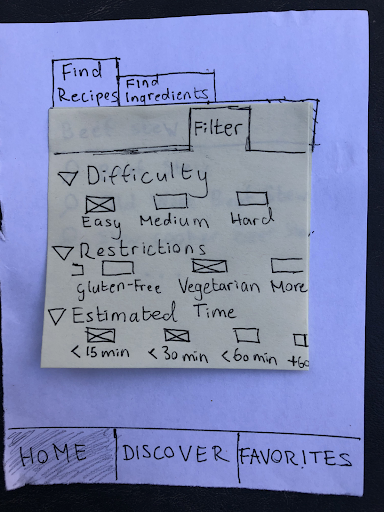 Find
Recipes
Find
Ingredients
Filter
Difficulty
Easy Medium Hard
Restrictions
Gluten-Free Vegetarian More
Estimated Time
<15 min <30 min <60 min +60
HOME DISCOVER FAVORITES